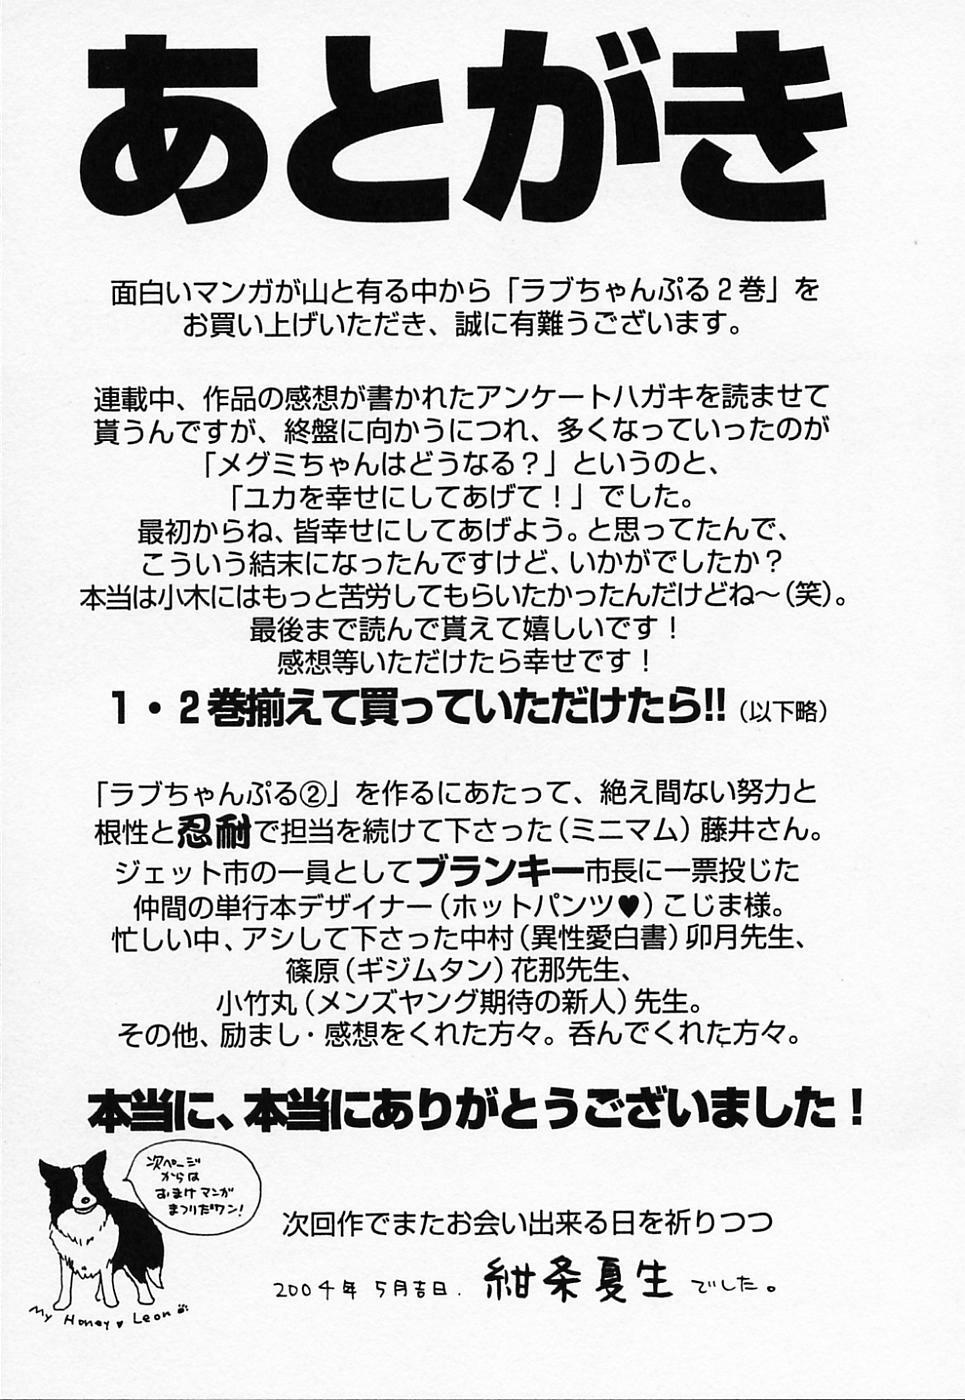 あとがき
面白いマンガが山と有る中から「ラブちゃんぷる２巻」を
お買い上げいただき、誠に有難うございます。
連載中、作品の感想が書かれたアンケートハガキを読ませて
貰うんですが、終盤に向かうにつれ、多くなっていったのが
「メグミちゃんはどうなる？」というのと、
「ユカを幸せにしてあげて！」でした。
最初からね、皆幸せにしてあげよう。と思ってたんで、
こういう結末になったんですけど、いかがでしたか？
本当は小木にはもっと苦労してもらいたかったんだけどね～（笑）。
最後まで読んで貰えて嬉しいです！
感想等いただけたら幸せです！
１・２巻揃えて買っていただけたら!!（以下略）
「ラブちゃんぷる②」を作るにあたって、絶え間ない努力と
根性と忍耐で担当を続けて下さった（ミニマム）藤井さん。
ジェット市の一員としてブランキー市長に一票投じた
仲間の単行本デザイナー（ホットパンツ♥）こじま様。
忙しい中、アシして下さった中村（異性愛白書）卯月先生、
篠原（ギジムタン）花那先生、
小竹丸（メンズヤング期待の新人）先生。
その他、励まし・感想をくれた方々。呑んでくれた方々。
本当に、本当にありがとうございました！
次ページ
からは
おまけマンガ
まつりだワン！
次回作でまたお会い出来る日を祈りつつ
2004年 5月吉日. 紺条夏生 でした。
My Honey ♥ Leon